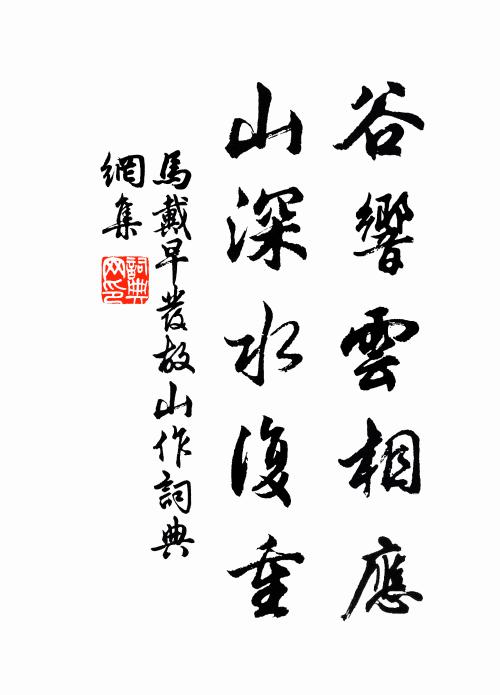 谷響雲相應
山深水復重
馬戴早發故山作詞典
網集
詞典
网印